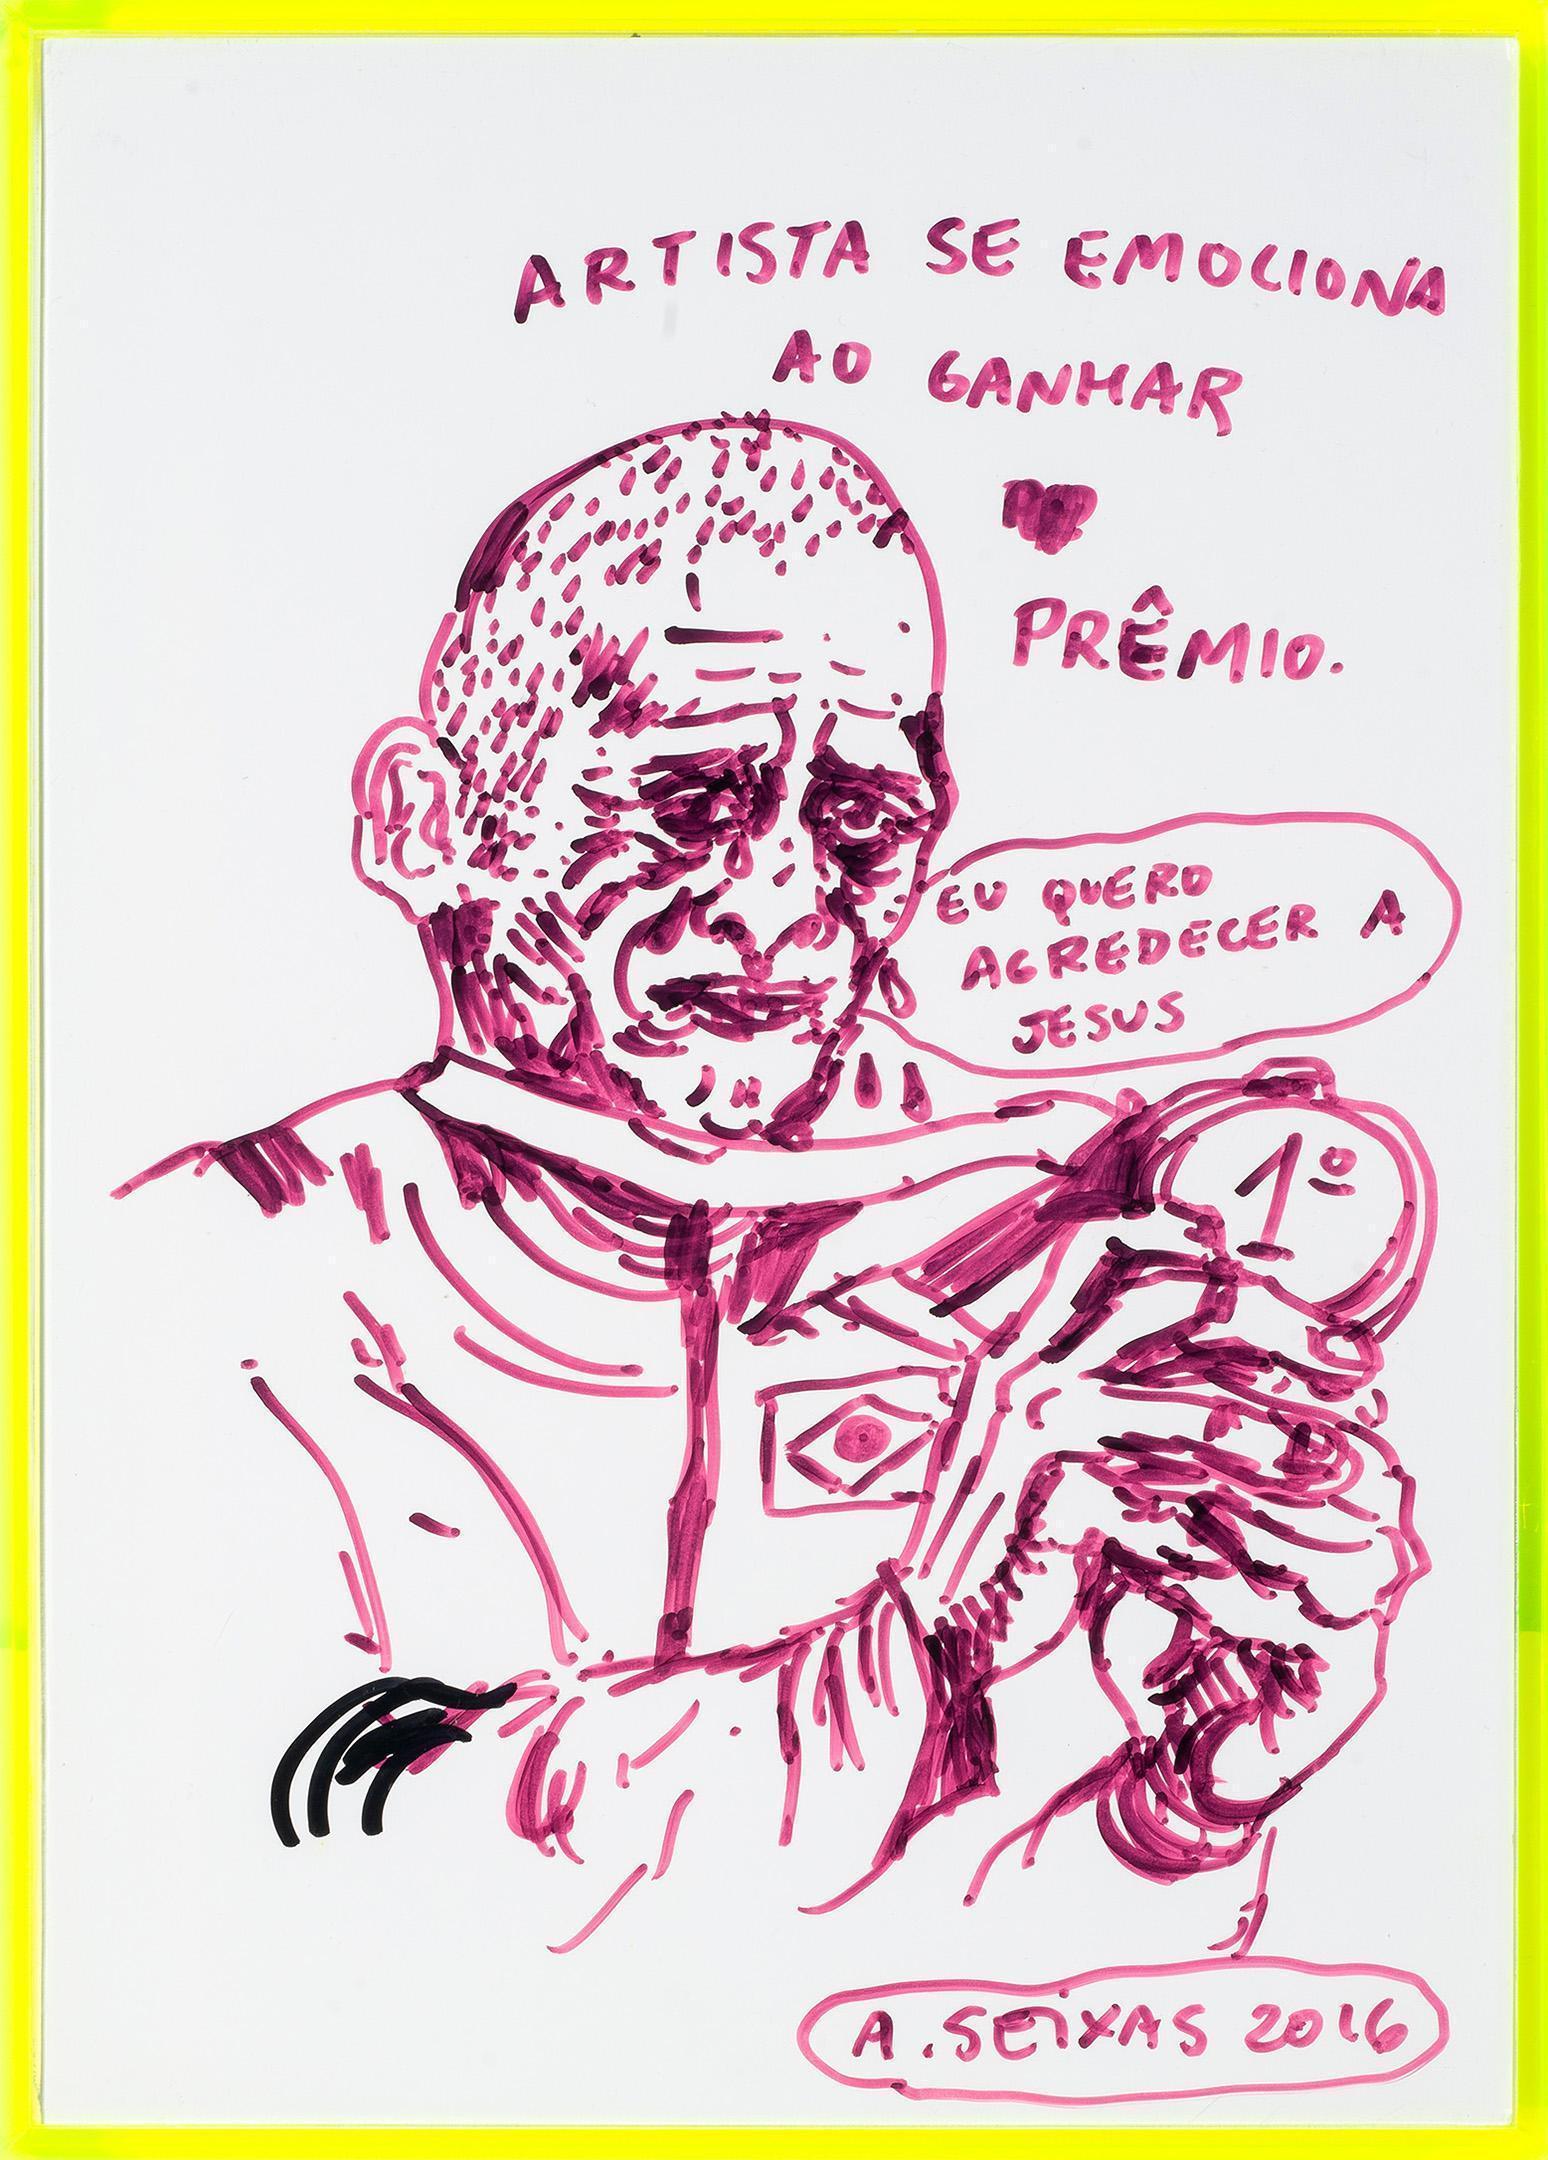 ARTISTA SE EMOCIONA
AO GANHAR
PRÊMIO.
EU QUERO
AGREDECER A
JESUS
1º
A. SEIXAS 2016